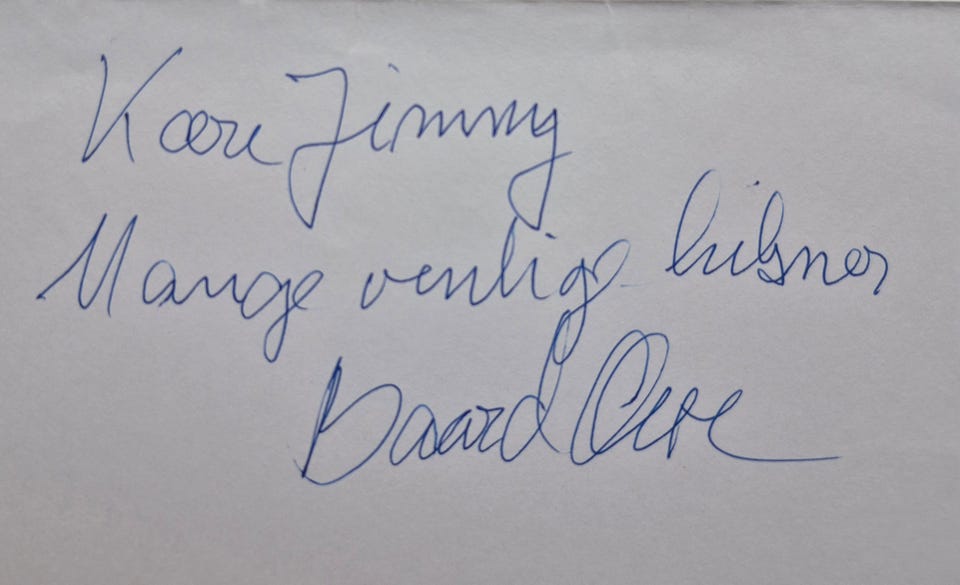 Kære Jimmy
Mange venlige hilsner
Baard Owe